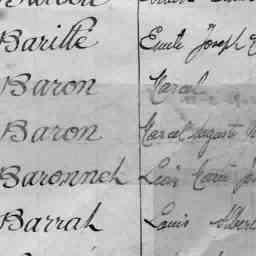 Barillé Emile Joseph
Baron Marcel
Baron Marcel Auguste
Baronneh Louis Marie
Barrah Louis Albert